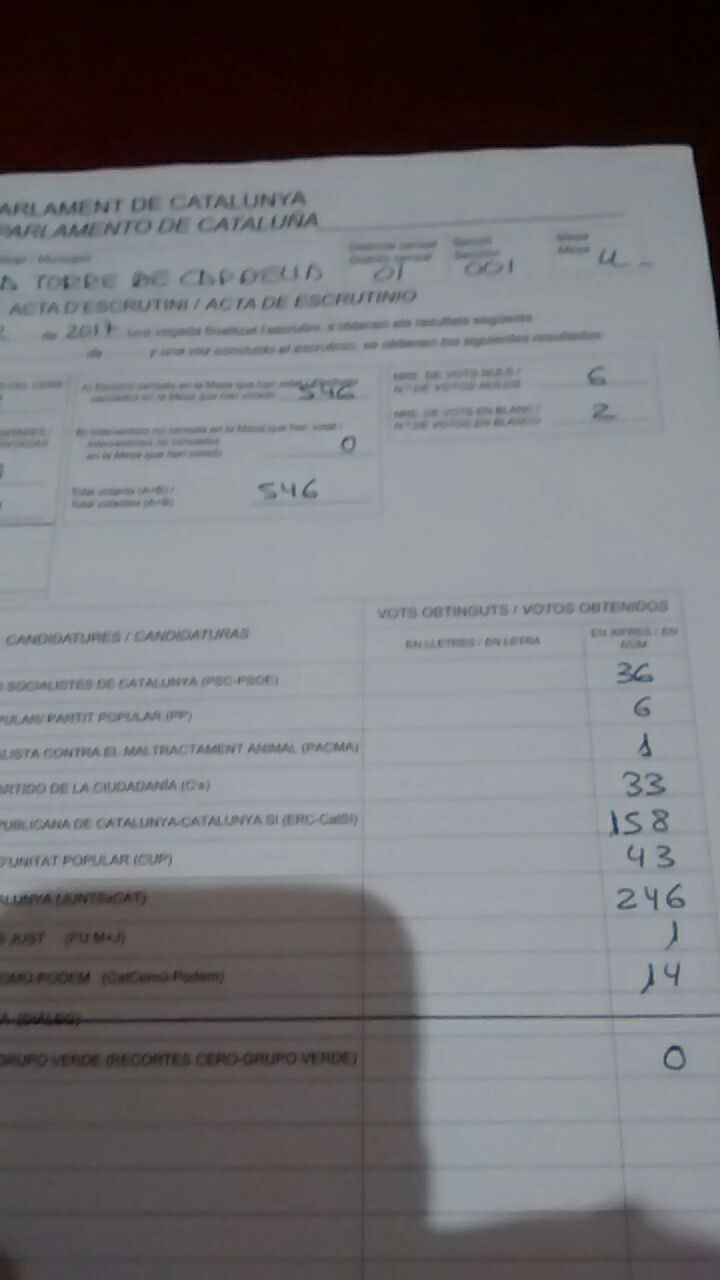 ARLAMENT DE CATALUNYA
PARLAMENTO DE CATALUÑA
Municipi - Municipio
Districte censal
Distrito censal
01
Secció
Sección
001
Mesa
Mesa
U
A TORRE DE CAPDELLA
ACTA D'ESCRUTINI / ACTA DE ESCRUTINIO
de 2017 una vegada finalitzat l'escrutini, s'obtenen els resultats següents
de y una vez concluido el escrutinio, se obtienen los siguientes resultados
censados en la Mesa que han votado 546
NRE. DE VOTS NULS /
N.º DE VOTOS NULOS 6
NRE. DE VOTS EN BLANC /
N.º DE VOTOS EN BLANCO 2
B) Interventors no censats en la Mesa que han votat /
Interventores no censados
en la Mesa que han votado 0
Total votants (A+B) /
Total votantes (A+B) 546
CANDIDATURES / CANDIDATURAS
VOTS OBTINGUTS / VOTOS OBTENIDOS
EN LLETRES / EN LETRA
EN XIFRES / EN
NUM
SOCIALISTES DE CATALUNYA (PSC-PSOE) 36
PULAR/ PARTIT POPULAR (PP) 6
LISTA CONTRA EL MALTRACTAMENT ANIMAL (PACMA) 1
ARTIDO DE LA CIUDADANÍA (C's) 33
PUBLICANA DE CATALUNYA-CATALUNYA SI (ERC-CatSI) 158
D'UNITAT POPULAR (CUP) 43
ALUNYA (JUNTSxCAT) 246
S JUST (PU M+J) 1
OMÚ-PODEM (CatComú-Podem) 14
A (DIÀLEG)
GRUPO VERDE (RECORTES CERO-GRUPO VERDE) 0